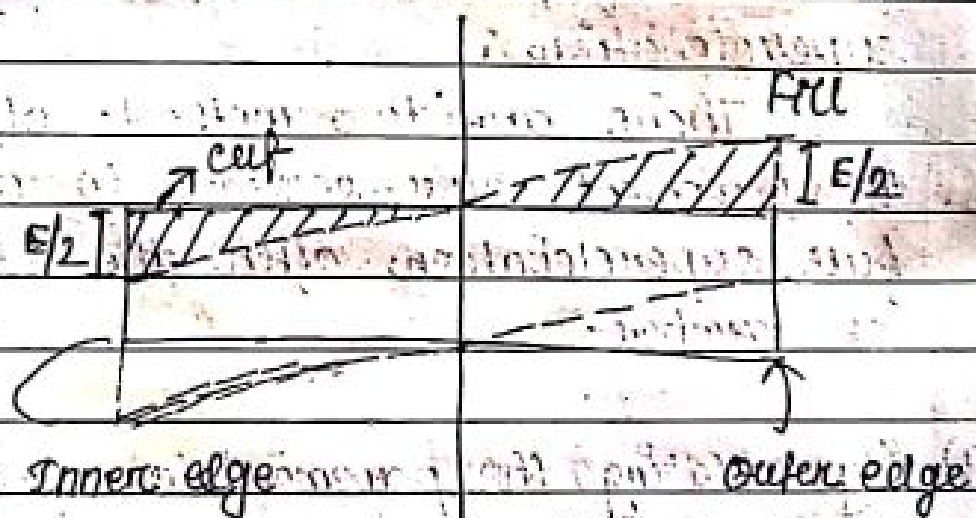 Fill
cut
E/2
E/2
Inner edge
Outer edge